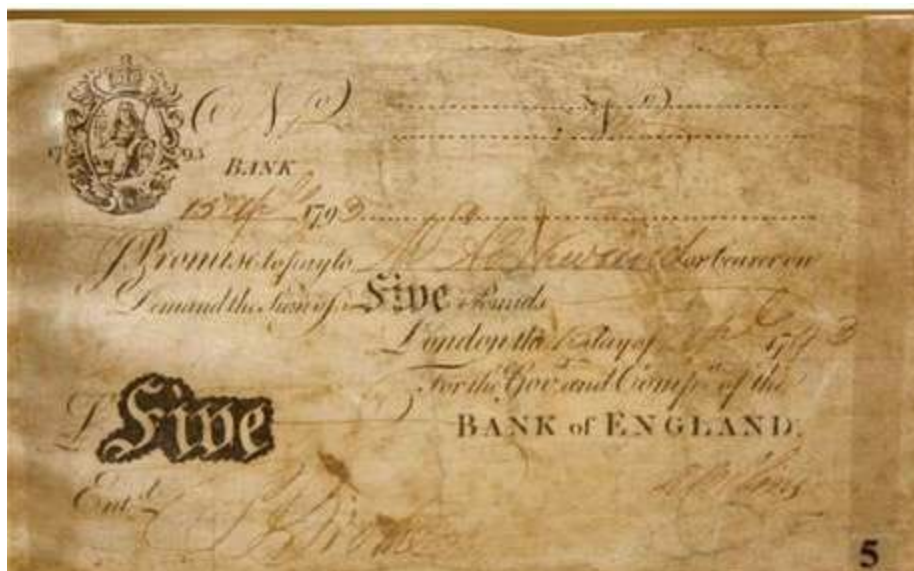 No 2 No 2
17 93
BANK
15 Apl 1793
I Promise to pay to Mr or bearer on
Demand the Sum of Five Pounds
London the 15 day of Apl 1793
For the Govr and Compa of the
BANK of ENGLAND.
£ Five
Entd
5